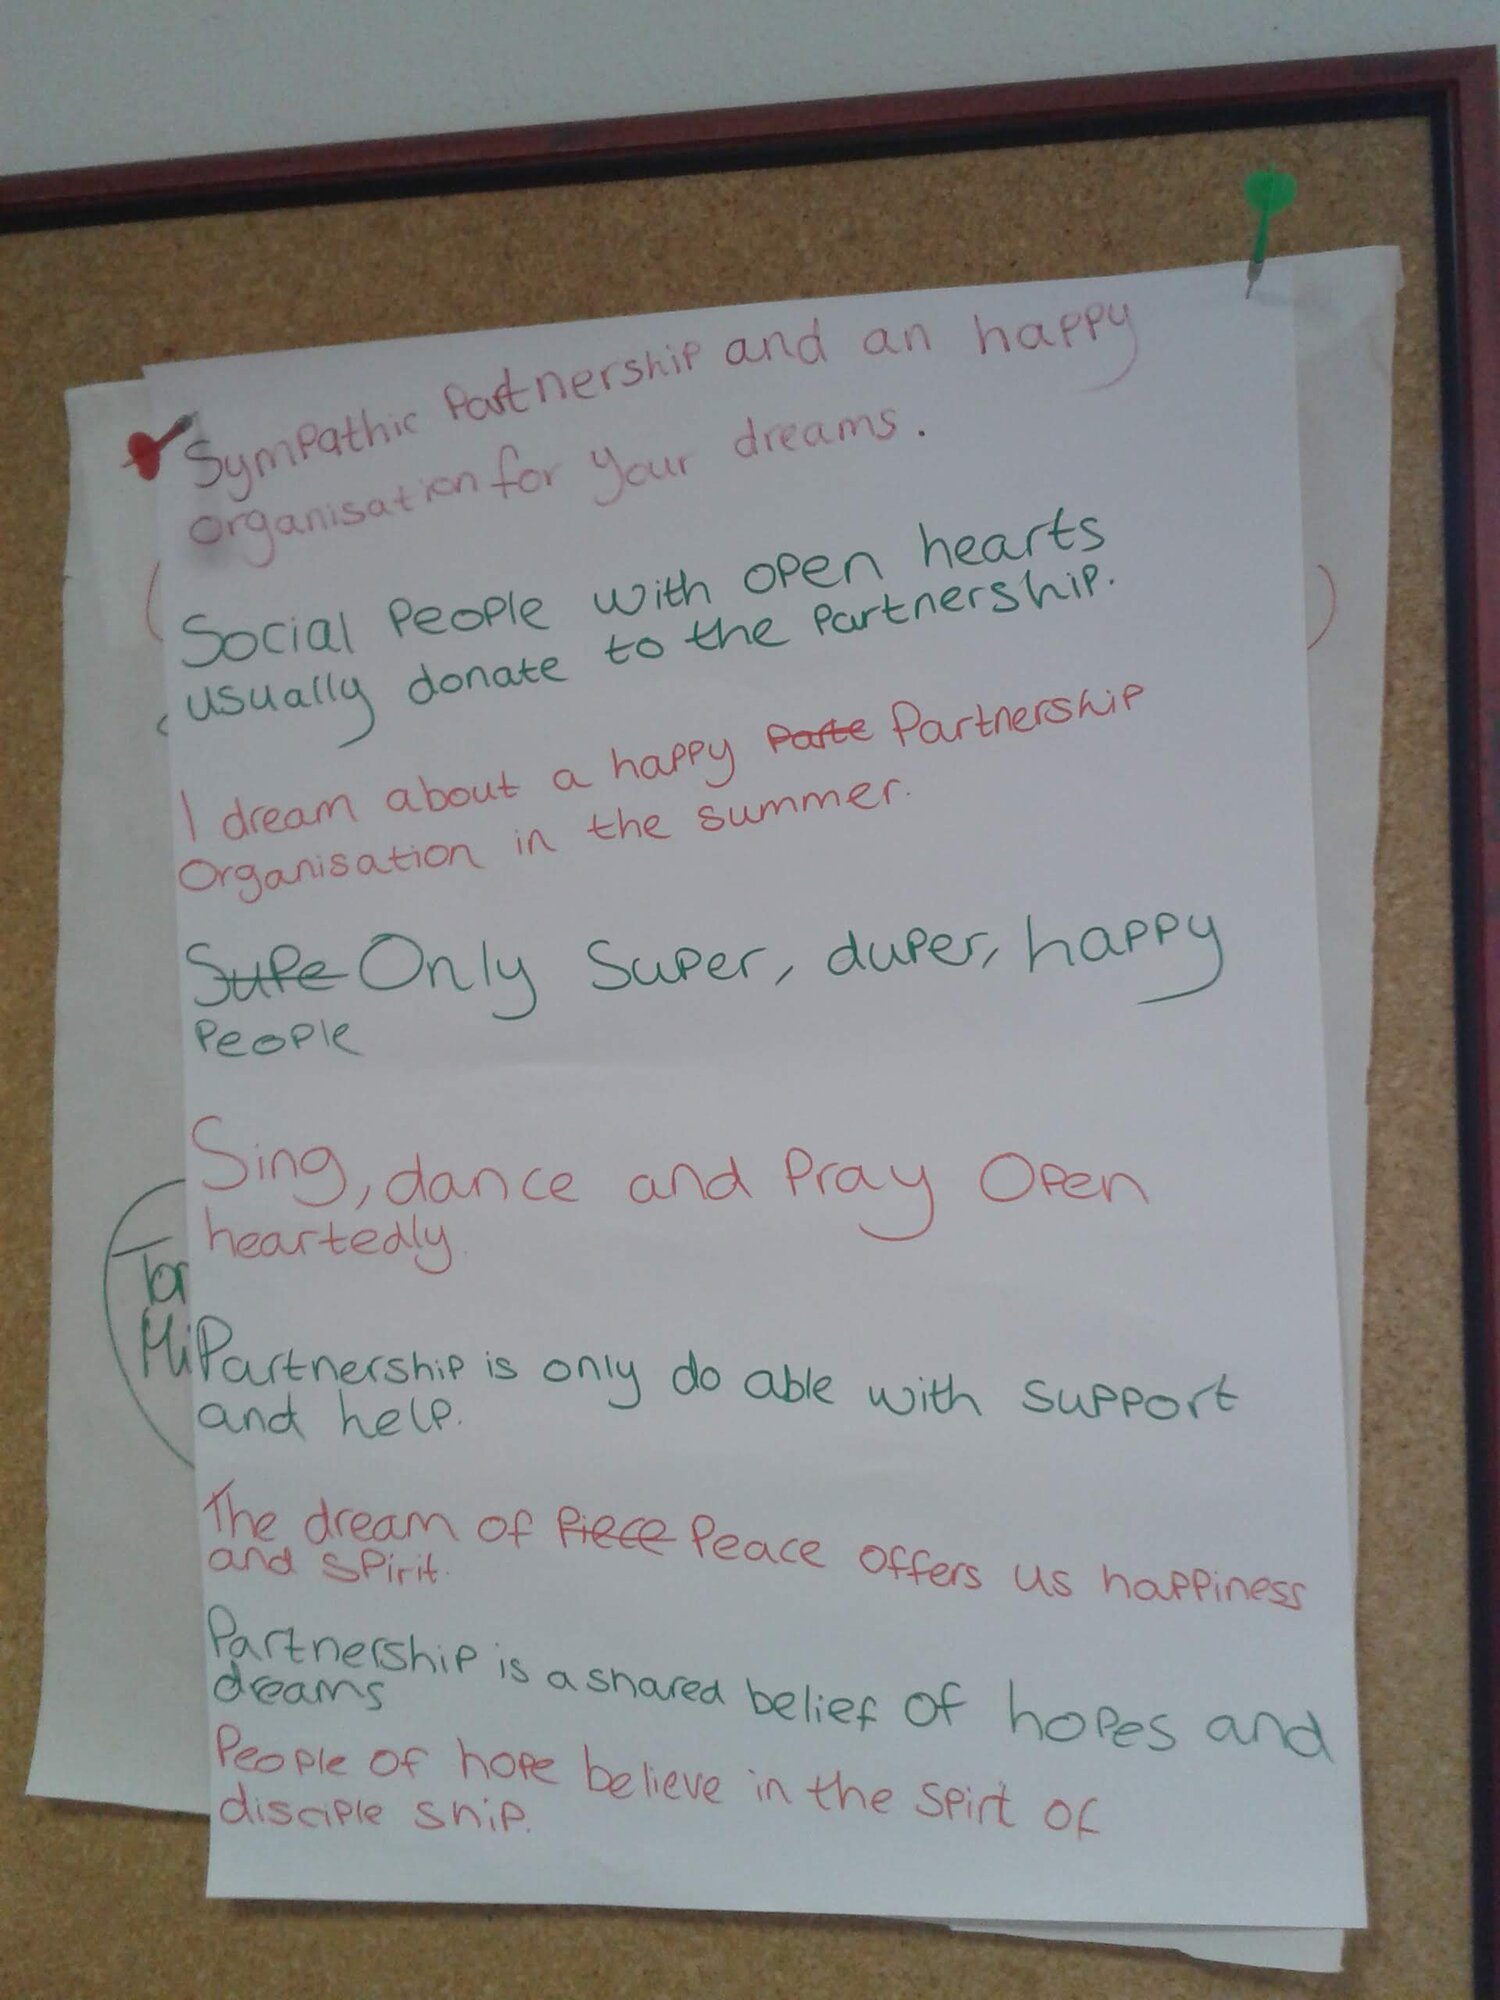 Sympathic Partnership and an happy
organisation for your dreams.
Social People with open hearts
usually donate to the Partnership.
I dream about a happy Parte Partnership
Organisation in the summer.
Supe Only Super, duper, happy
People
Sing, dance and Pray Open
heartedly.
Partnership is only do able with support
and help.
The dream of Piece Peace offers us happiness
and spirit.
Partnership is a shared belief of hopes and
dreams
People of hope believe in the spirt of
disciple ship.